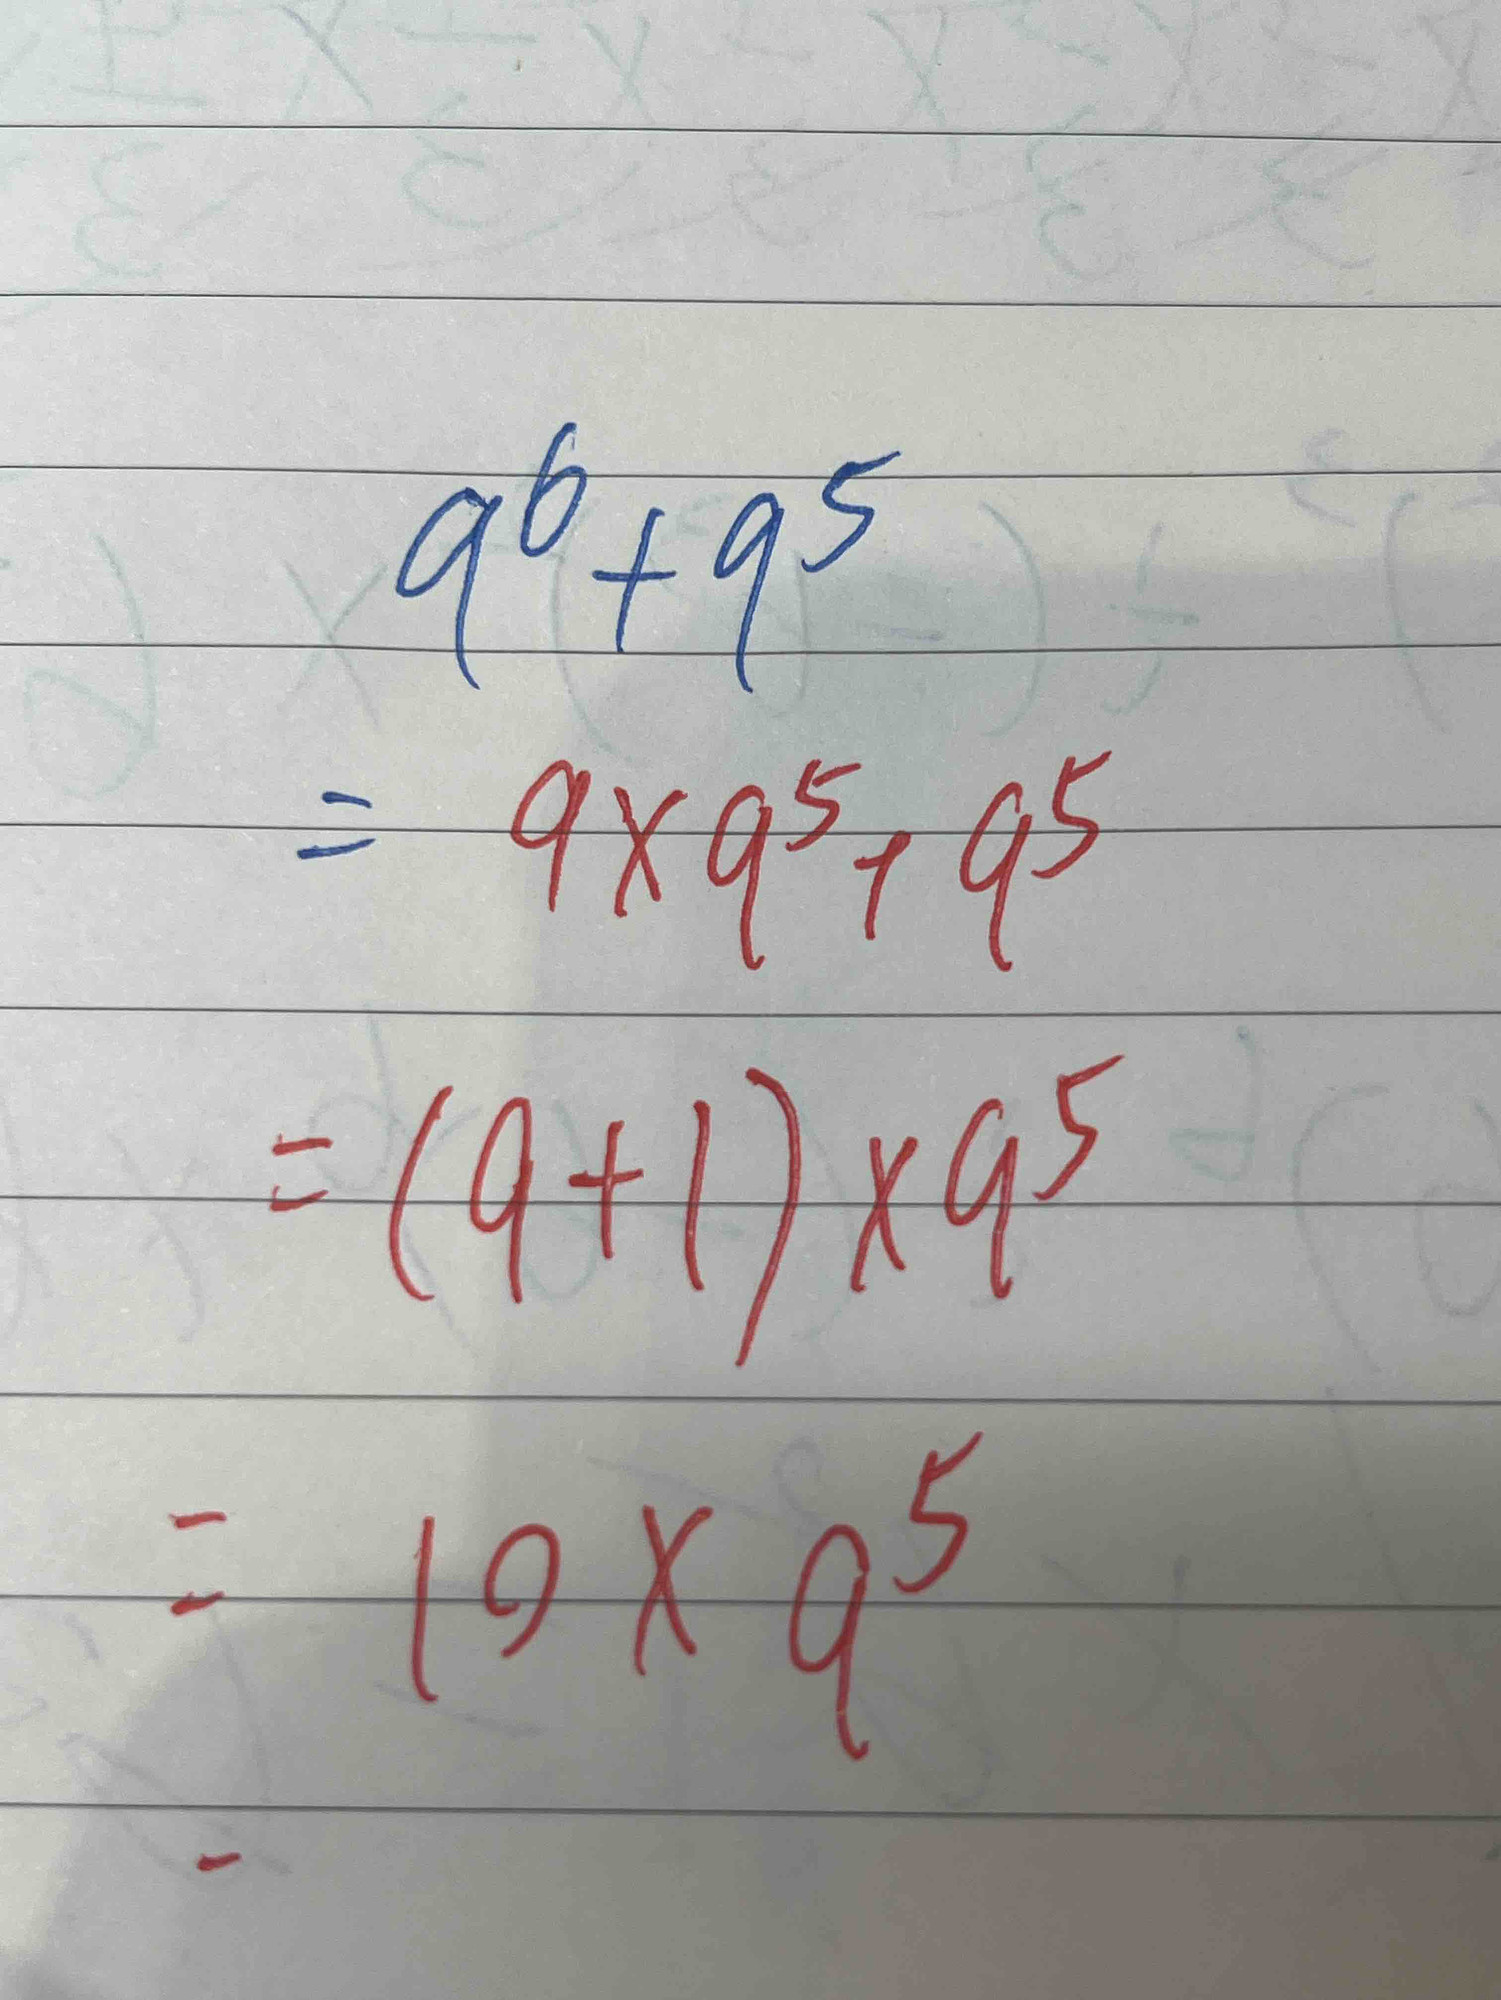 9⁶+9⁵
= 9×9⁵+9⁵
=(9+1)×9⁵
= 10×9⁵
-